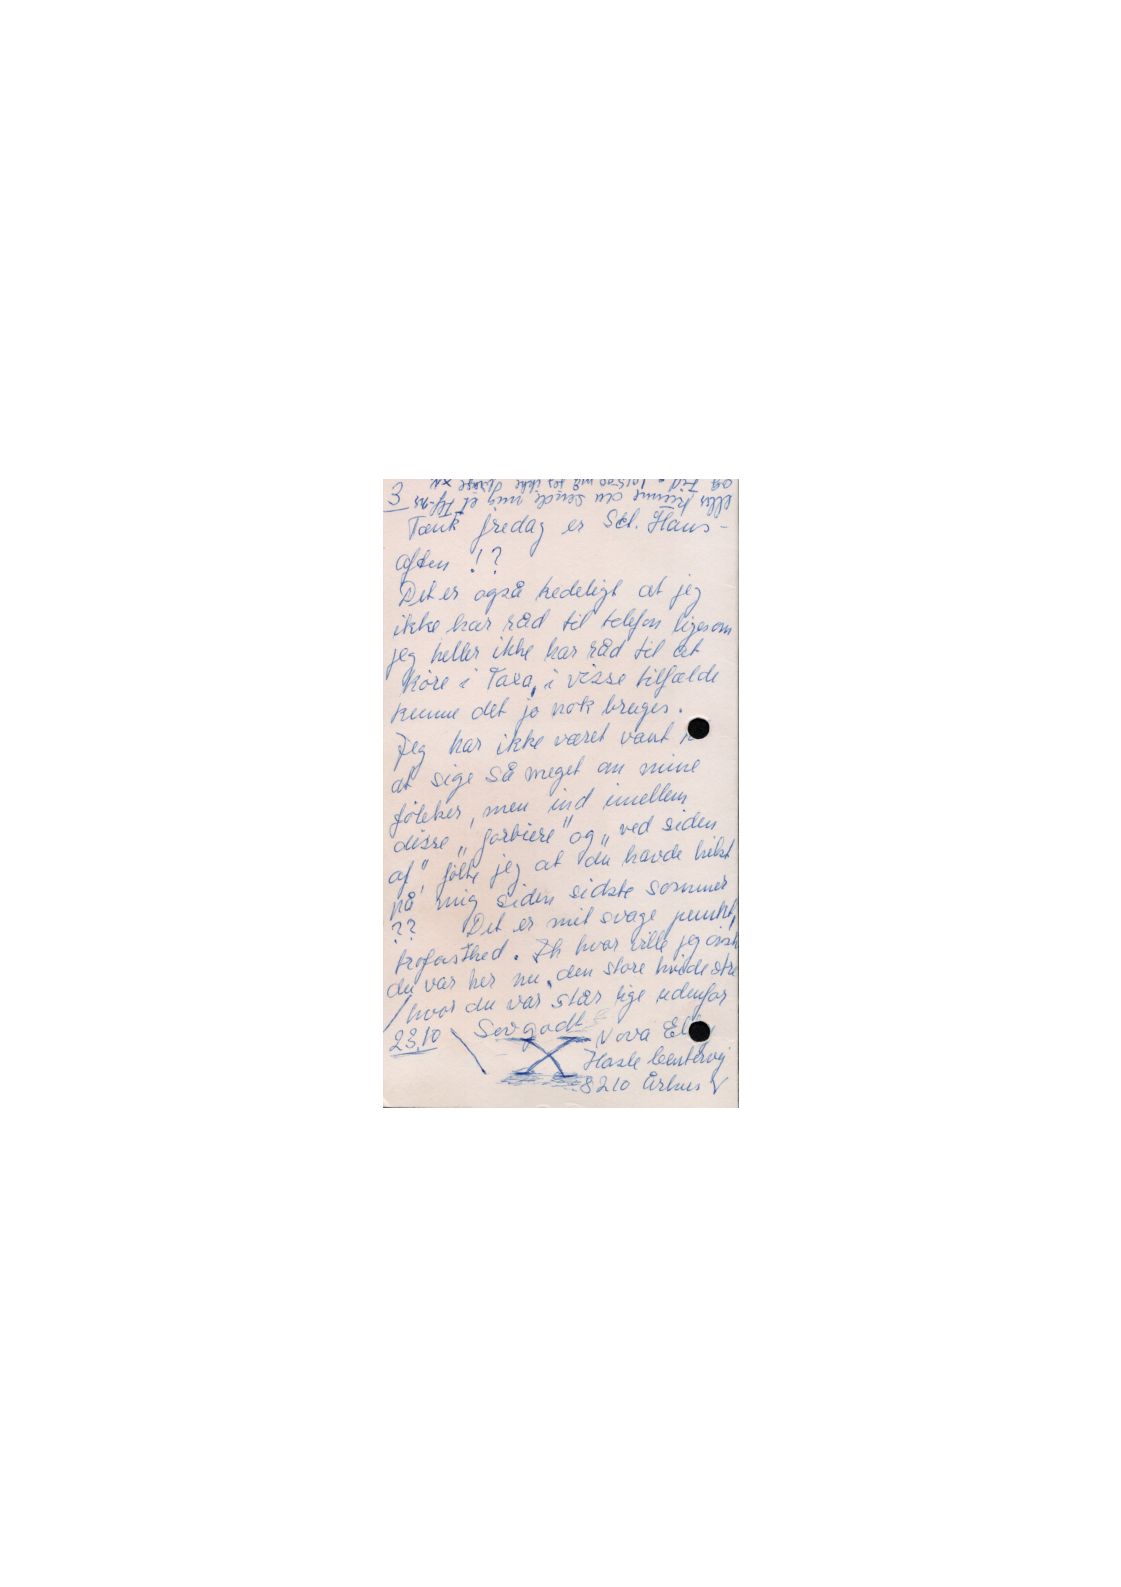 3
eller kunne du sende mig et
og
Tænk fredag er Sct. Hans-
aften !?
Det er også kedeligt at jeg
ikke har råd til telefon ligesom
jeg heller ikke har råd til at
köre i Taxa, i visse tilfælde
kunne det jo nok bruges.
Jeg har ikke været vant
at sige så meget om mine
fölelser, men ind imellem
disse „forbiere" og „ved siden
af", fölte jeg at du havde
på mig siden sidste sommer
?? Det er mit svage punkt,
trofasthed. Ih hvor ville jeg
du var her nu, den store hvide
/hvor du var står lige udenfor
23.10 Sov godt
X Nova
Hasle Centervej
8210 Århus V